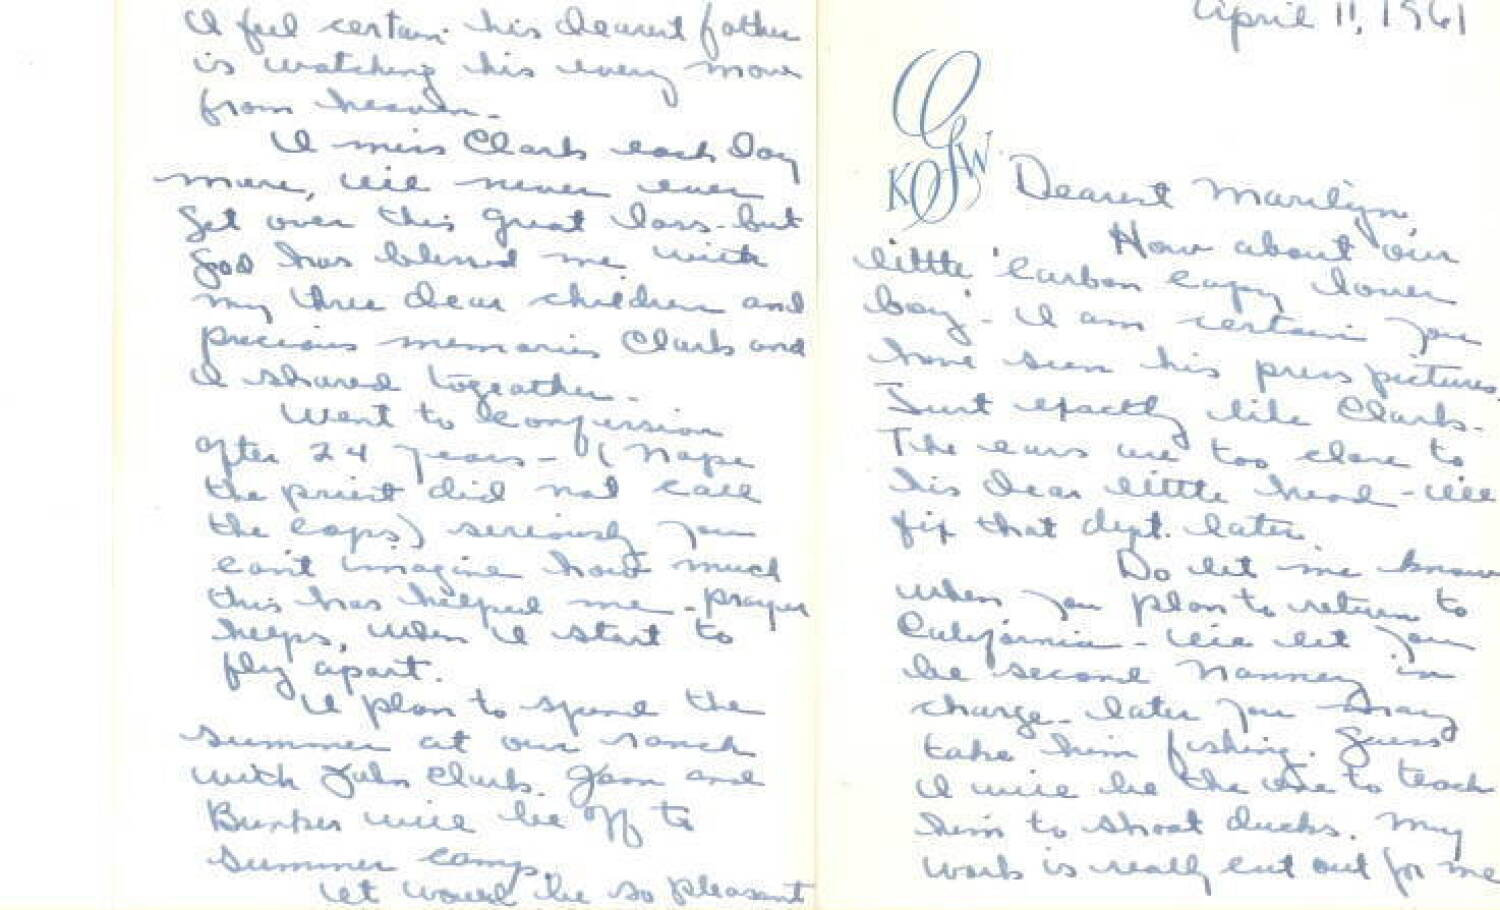 April 11, 1961
Dearest Marilyn,
How about our
little 'carbon copy lover
boy'- I am certain you
have seen his press pictures.
Just exactly like Clark-
The ears are too close to
his dear little head - will
fix that dept. later.
Do let me know
when you plan to return to
California - will let you
be second nanney in
charge - later you may
take him fishing. Guess
I will be the one to teach
him to shoot ducks. My
work is really cut out for me
I feel certain his dearest father
is watching his every move
from heaven.
I miss Clark each day
more, will never ever
get over this great loss - but
God has blessed me with
my three dear children and
precious memories Clark and
I shared togeather.
Went to Confession
after 24 years - (Nope
the priest did not call
the cops) seriously you
can't imagine how much
this has helped me - prayer
helps, when I start to
fly apart.
I plan to spend the
summer at our ranch
with John Clark. Joan and
Bunker will be off to
summer camp.
It would be so pleasant